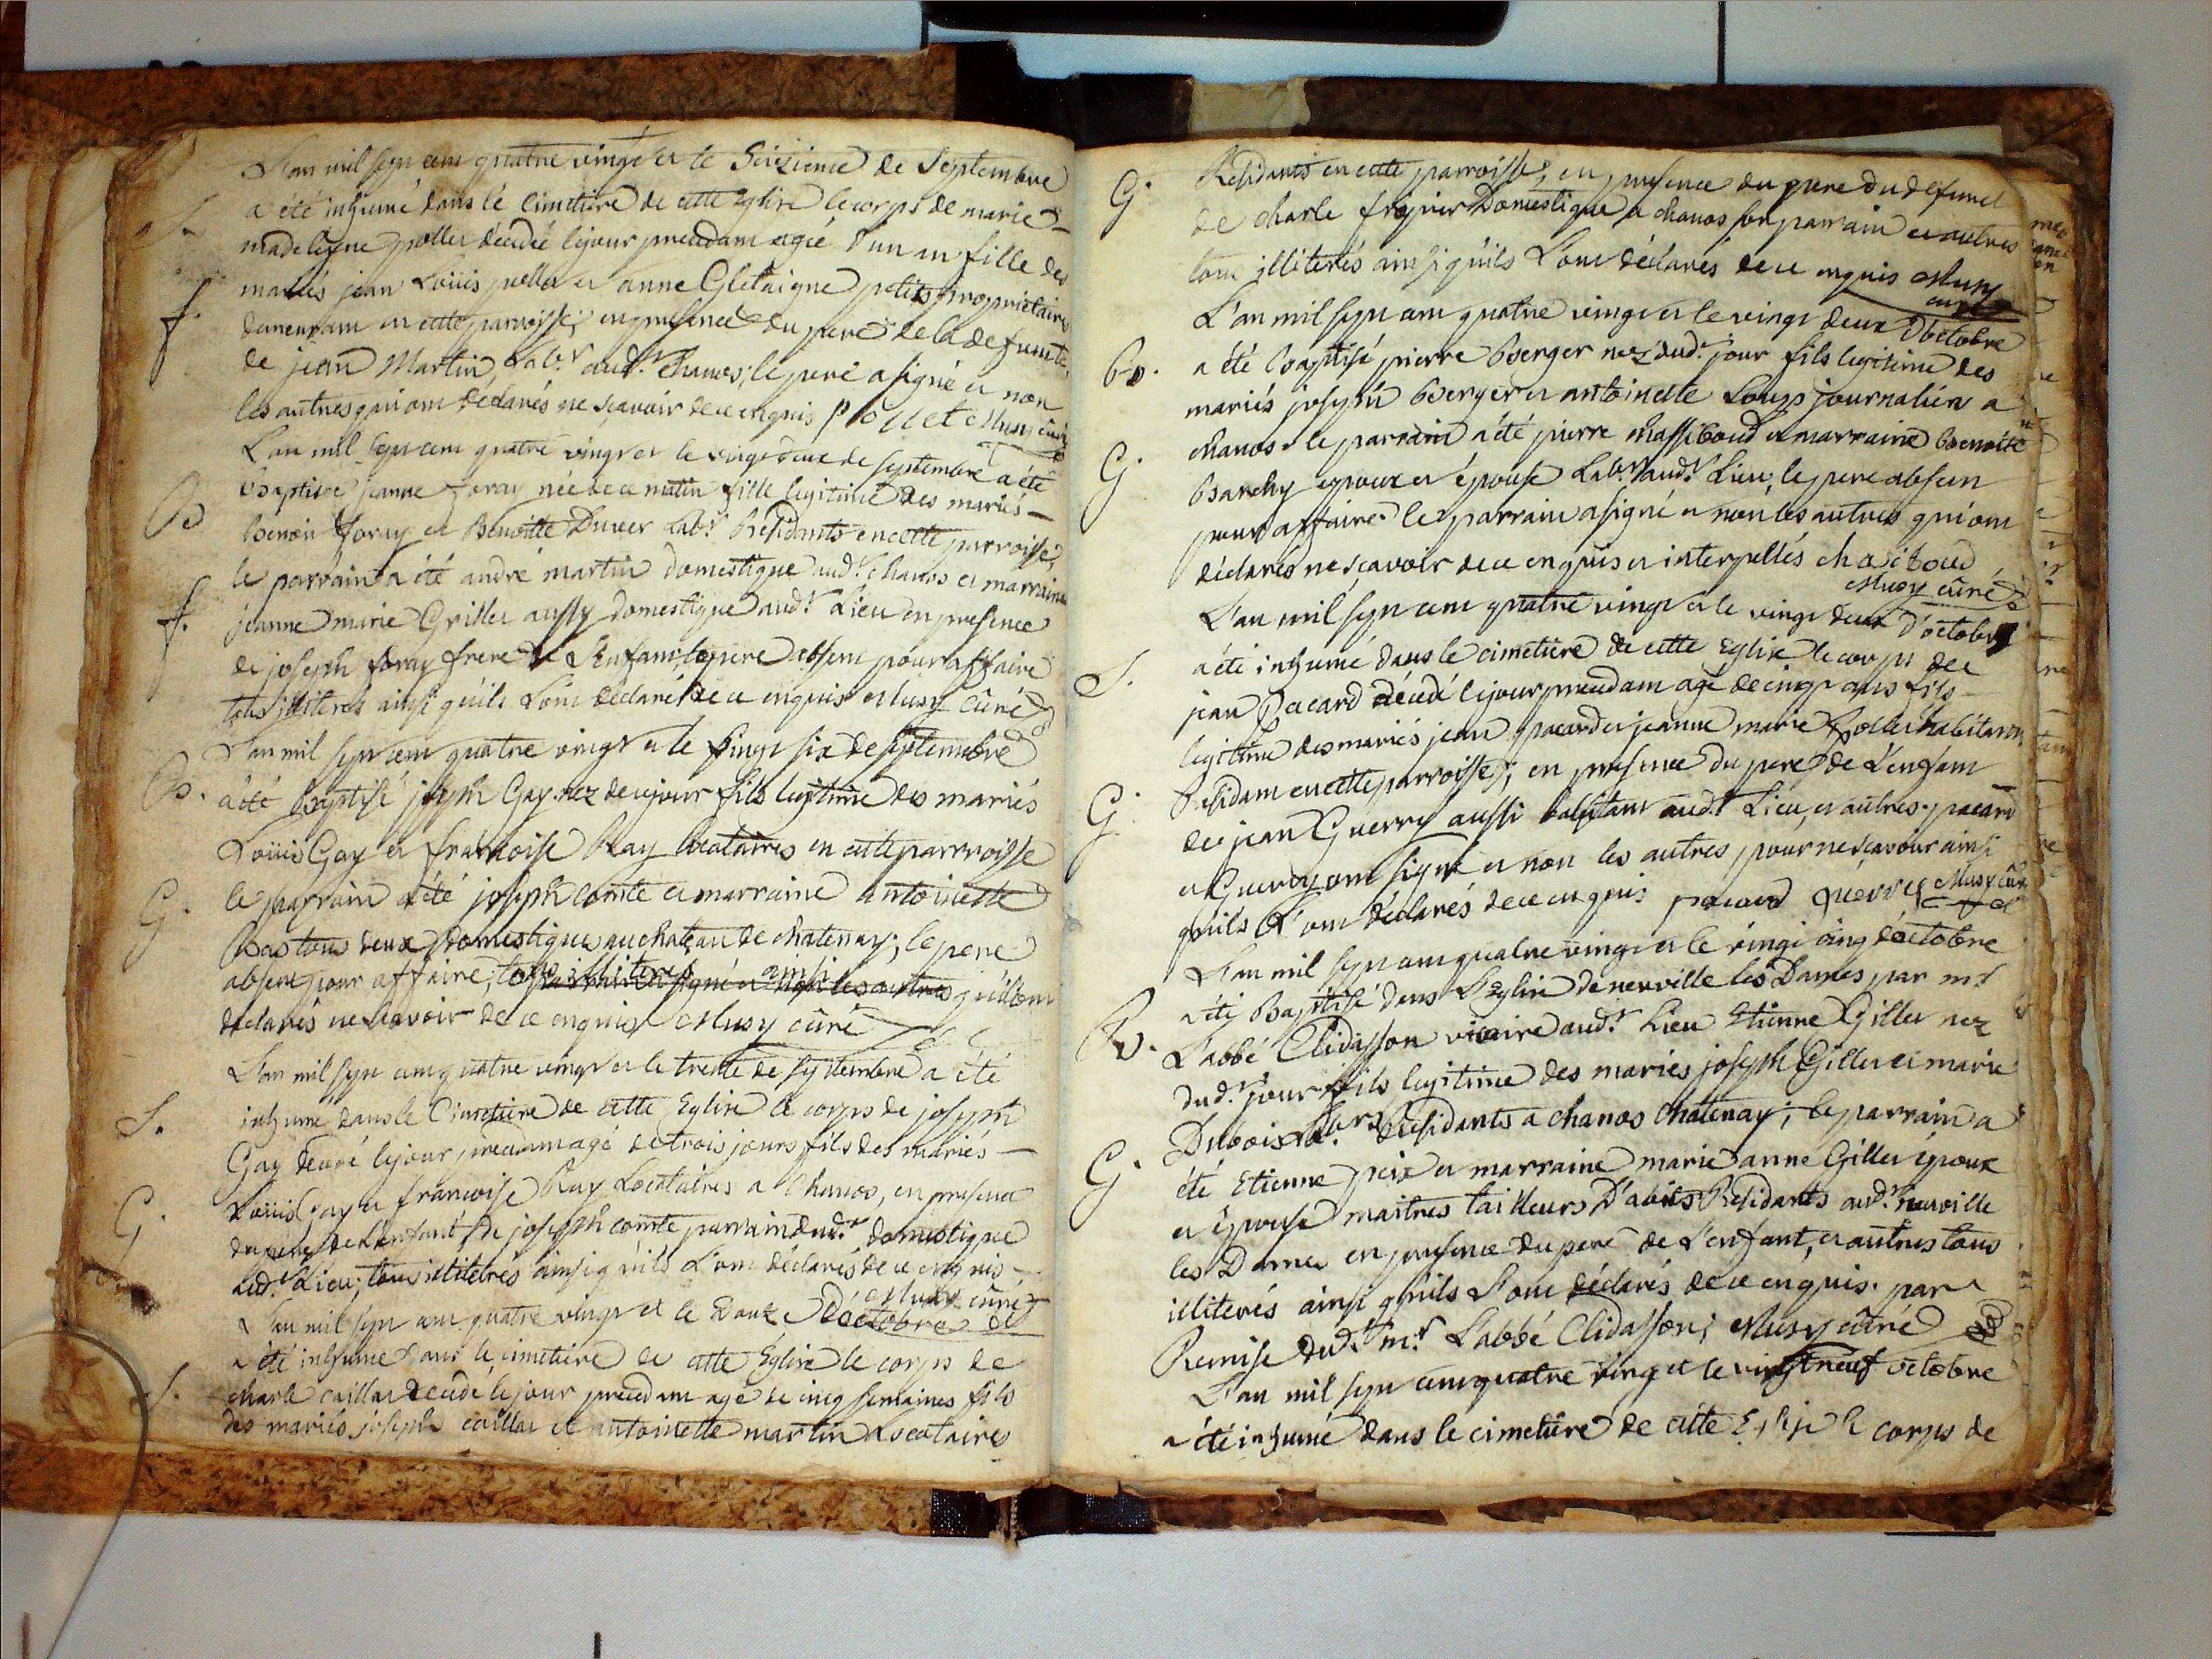 L'an mil sept cent quatre vingt et le Seizieme de Septembre
S. a été inhumé dans le cimetiere de cette Eglise le corps de marie
madeleine pollet décédée le jour precedant agée d'un an fille des
mariés jean Loüis pollet et anne Gletaigne petits proprietaires
f. demeurant en cette parroisse, en presence du pere de la defunte,
de jean Martin, Labr. aud.t Chanos; le pere a signé et non
les autres qui ont declarés ne sçavoir de ce enquis Pollet Musy curé
L'an mil sept cent quatre vingt et le vingt deux de septembre a été
B Baptisée jeanne foray née de ce matin fille legitime des mariés
Benoit foray et Benoitte Labr. Residants en cette parroisse,
le parrain a été andré martin domestique aud.t Chanos et marraine
f. jeanne marie Grillet aussy domestique aud.t Lieu en presence
de joseph foray frere de L'enfant, le pere absent pour affaire
tous illiterés ainsi qu'ils L'ont déclaré de ce enquis Musy Cûré
L'an mil sept cent quatre vingt et le vingt six de septembre
B. a été Baptisé joseph Gay nez de ce jour fils legitime des mariés
Loüis Gay et francoise Ray locataires en cette parroisse
G. le parrain a été joseph comte et marraine antoinette
Bas tous deux domestiques au chateau de chatenay; le pere
absent pour affaire, tous illiterés ainsi le parrain a signé et non les autres qu'ils ont
declarés ne scavoir de ce enquis Musy cûré
L'an mil sept cent quatre vingt et le trente de septembre a été
S. inhumé dans le Cimetiere de cette Eglise le corps de joseph
Gay décédé le jour precedant agé de trois jours fils des mariés
G. Loüis Gay et francoise Ray Locataires a Chanos, en presence
du pere de L'enfant, de joseph comte parrain dud.t domestique
aud.t Lieu; tous illiterés ainsi qu'ils L'ont déclarés de ce enquis
Musy cûré
L'an mil sept cent quatre vingt et le Douze d'octobre
S. a été inhumé dans le cimetiere de cette Eglise le corps de
charle caillat décédé le jour precedant agé de cinq semaines fils
des mariés joseph caillat et antoinette martin Locataires
G. Residants en cette parroisse, en presence du pere du defunct
de charle frognier Domestique a chanos son parrain et autres
tous illiterés ainsi qu'ils L'ont déclarés de ce enquis Musy
curé
L'an mil sept cent quatre vingt et le vingt deux D'octobre
B. a été Baptisé pierre Berger nez dud.t jour fils legitime des
mariés joseph Berger et antoinette Loups journalier a
chanos le parrain a été pierre chassiboud et marraine Benoite
G Barchy epoux et épouse Labrs. aud.t Lieu; le pere absent
pour affaire le parrain a signé et non les autres qui ont
déclarés ne scavoir de ce enquis et interpellés chasiboud
Musy cûré
L'an mil sept cent quatre vingt et le vingt deux d'octobre
S. a été inhumé dans le cimetiere de cette Eglise le corps de
jean pacard décédé le jour precedant agé de cinq ans fils
legitime des mariés jean pacard et jeanne marie habitants
G. Residant en cette parroisse; en presence du pere de L'enfant
de jean Guerry aussi habitant aud.t Lieu, et autres. pacard
et Guerry ont signé et non les autres pour ne scavoir ainsi
qu'ils L'ont déclarés de ce enquis pacard guerry Musy cûré
L'an mil sept cent quatre vingt et le vingt cinq d'octobre
B. a été Baptisé dans L'Eglise de neuville les Dames par mr.
L'abbé Clidasson vicaire aud.t Lieu Etienne Gillet nez
dud.t jour fils legitime des mariés joseph Gillet et marie
Dubois Labrs. Residants a chanos chatenay; le parrain a
G été Etienne peix et marraine marie anne Gillet époux
et épouse maitres tailleurs D'abits Residants aud.t neuville
les Dames en presence du pere de L'enfant, et autres tous
illiterés ainsi qu'ils L'ont déclarés de ce enquis. par
Remise dud.t mr. L'abbé Clidasson; Musy cûré
L'an mil sept cent quatre vingt et le vingt neuf octobre
a été inhumé dans le cimetiere de cette Eglise le corps de